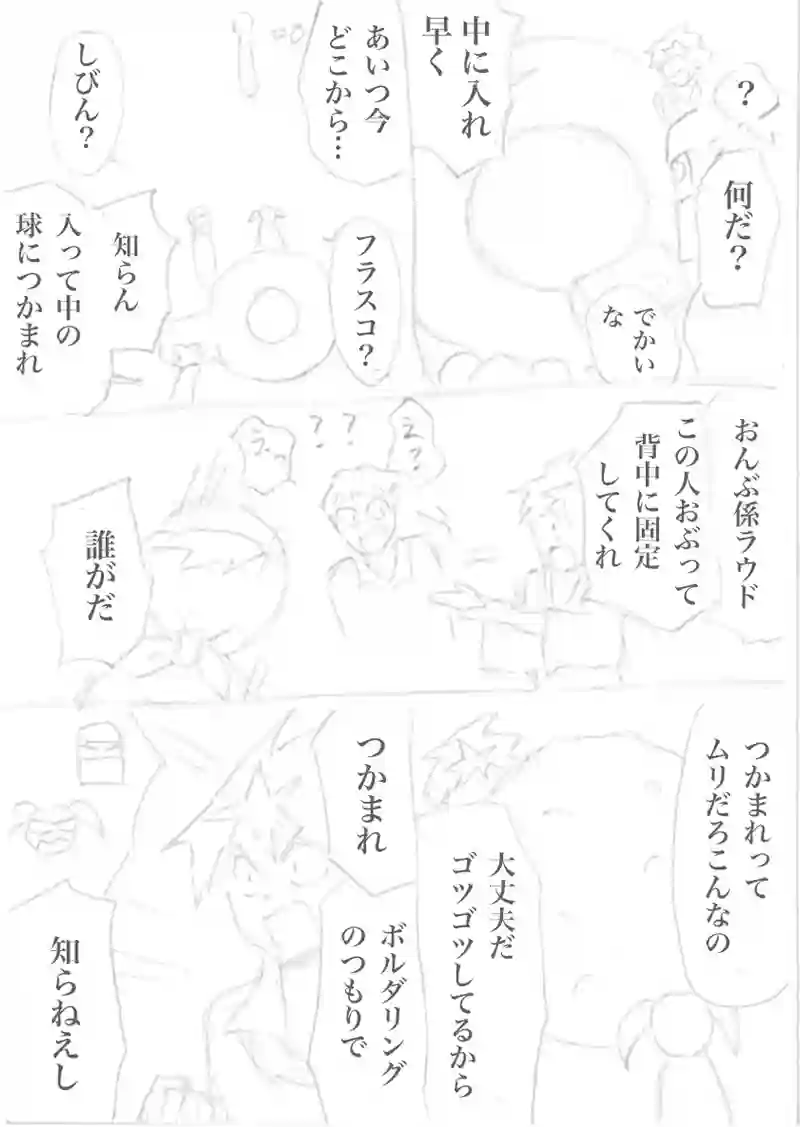 ？
何だ？
でかい
な
中に入れ
早く
あいつ今
どこから…
フラスコ？
しびん？
知らん
入って中の
球につかまれ
おんぶ係ラウド
この人おぶって
背中に固定
してくれ
え？
？？
えっ
誰がだ
つかまれって
ムリだろこんなの
大丈夫だ
ゴツゴツしてるから
つかまれ
ボルダリング
のつもりで
知らねえし